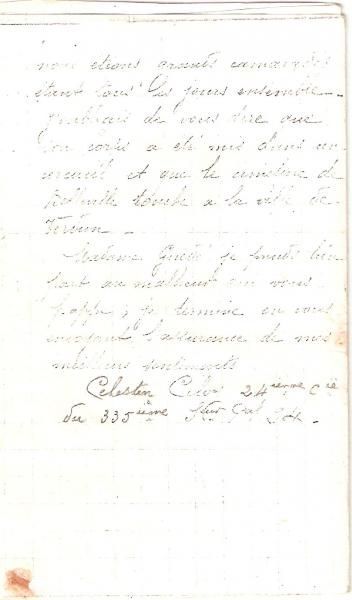 nous etions grands camarades
étant tous les jours ensemble
J'oubliais de vous dire que
son corps a été mis dans un
cercueil et que le cimetière de
Belleville touche a la ville de
Verdun.
Madame je prends bien
part au malheur qui vous
frappe, je termine en vous
envoyant l'assurance de mes
meilleurs sentiments
Celestin 24ieme Cie
du 335ième 24.